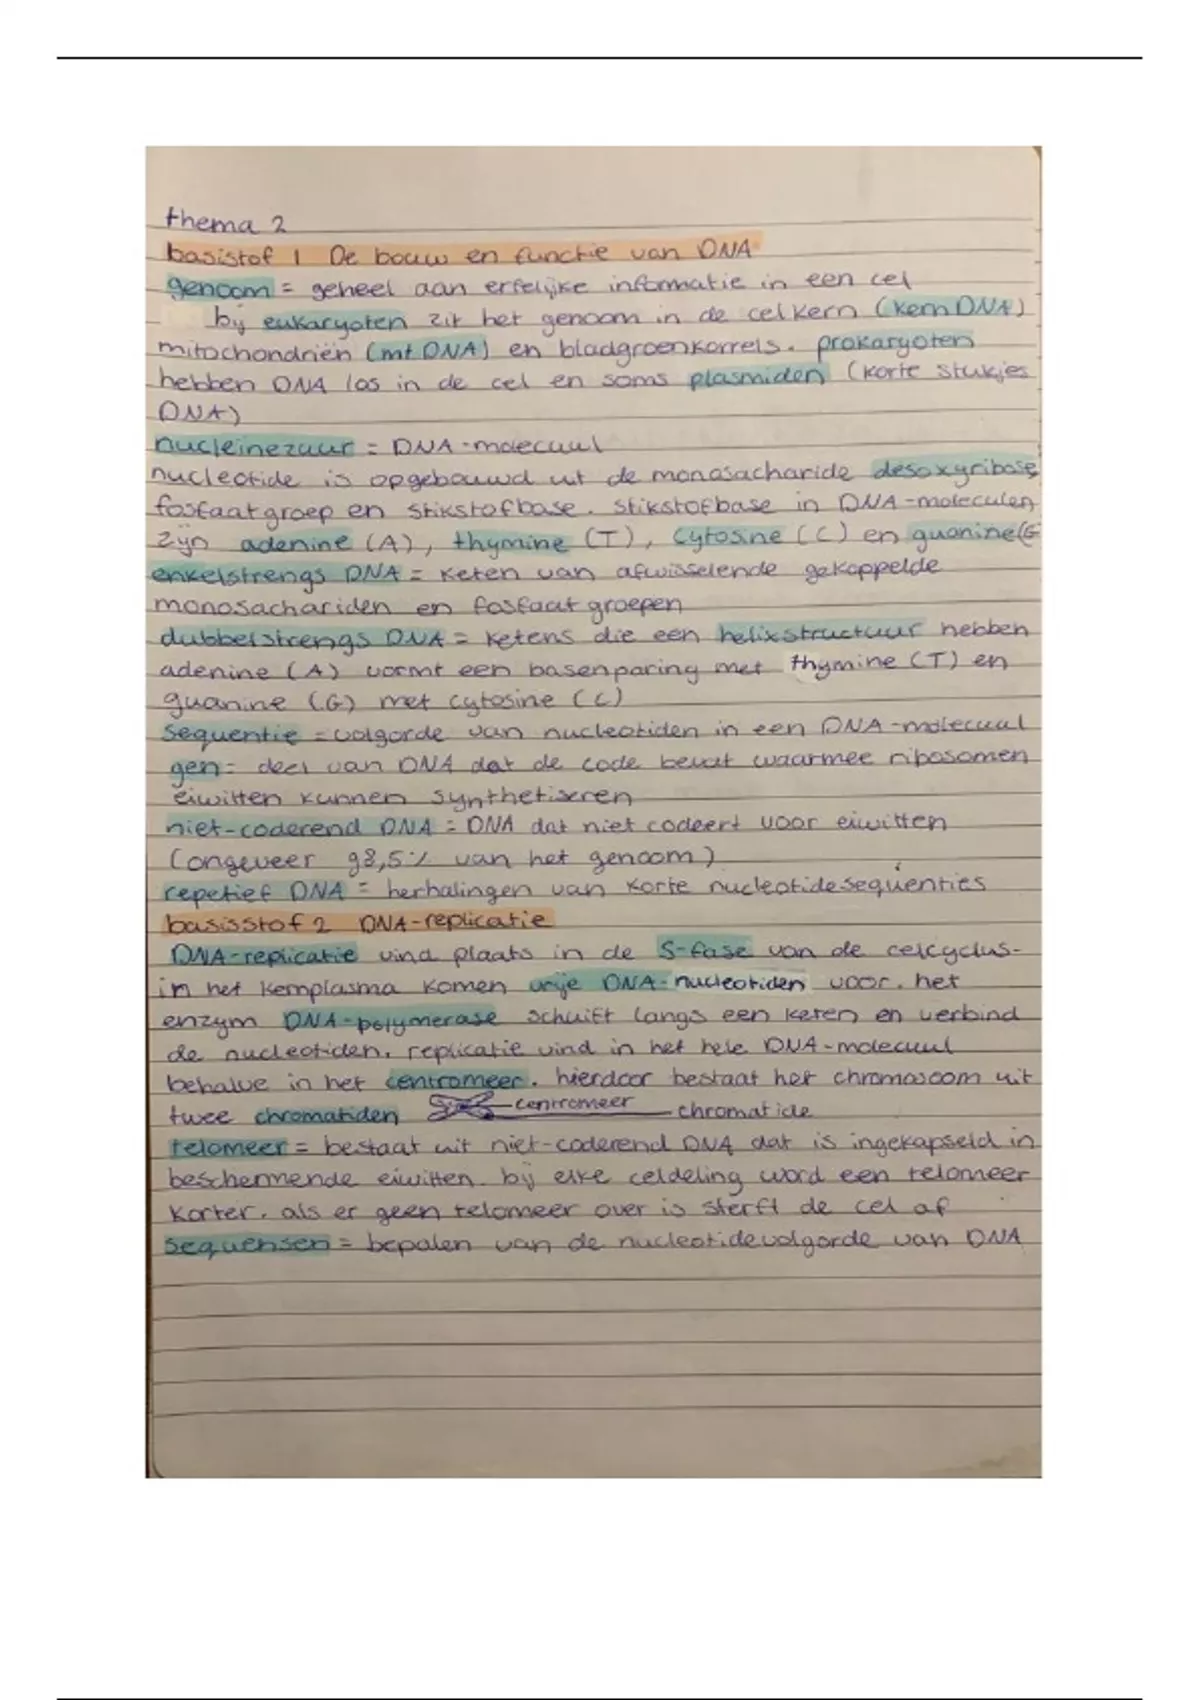 thema 2
basistof 1 De bouw en functie van DNA
genoom = geheel aan erfelijke informatie in een cel
bij eukaryoten zit het genoom in de celkern (kernDNA)
mitochondriën (mt DNA) en bladgroenkorrels. prokaryoten
hebben DNA los in de cel en soms plasmiden (korte stukjes
DNA)
nucleinezuur = DNA-molecuul
nucleotide is opgebouwd uit de monosacharide desoxyribose,
fosfaatgroep en stikstofbase. stikstofbase in DNA-moleculen
zijn adenine (A), thymine (T), cytosine (C) en guanine(G
enkelstrengs DNA = keten van afwisselende gekoppelde
monosachariden en fosfaatgroepen
dubbelstrengs DNA = ketens die een helixstructuur hebben
adenine (A) vormt een basenparing met thymine (T) en
guanine (G) met cytosine (C)
sequentie = volgorde van nucleotiden in een DNA-molecuul
gen = deel van DNA dat de code bevat waarmee ribosomen
eiwitten kunnen synthetiseren
niet-coderend DNA = DNA dat niet codeert voor eiwitten
(ongeveer 98,5% van het genoom)
repetief DNA = herhalingen van korte nucleotidesequenties
basisstof 2 DNA-replicatie
DNA-replicatie vind plaats in de S-fase van de celcyclus.
in het kernplasma komen vrije DNA-nucleotiden voor. het
enzym DNA-polymerase schuift langs een keten en verbind
de nucleotiden. replicatie vind in het hele DNA-molecuul
behalve in het centromeer. hierdoor bestaat het chromosoom uit
twee chromatiden centromeer chromatide
telomeer = bestaat uit niet-coderend DNA dat is ingekapseld in
beschermende eiwitten. bij elke celdeling word een telomeer
korter. als er geen telomeer over is sterft de cel af
sequensen = bepalen van de nucleotidevolgorde van DNA